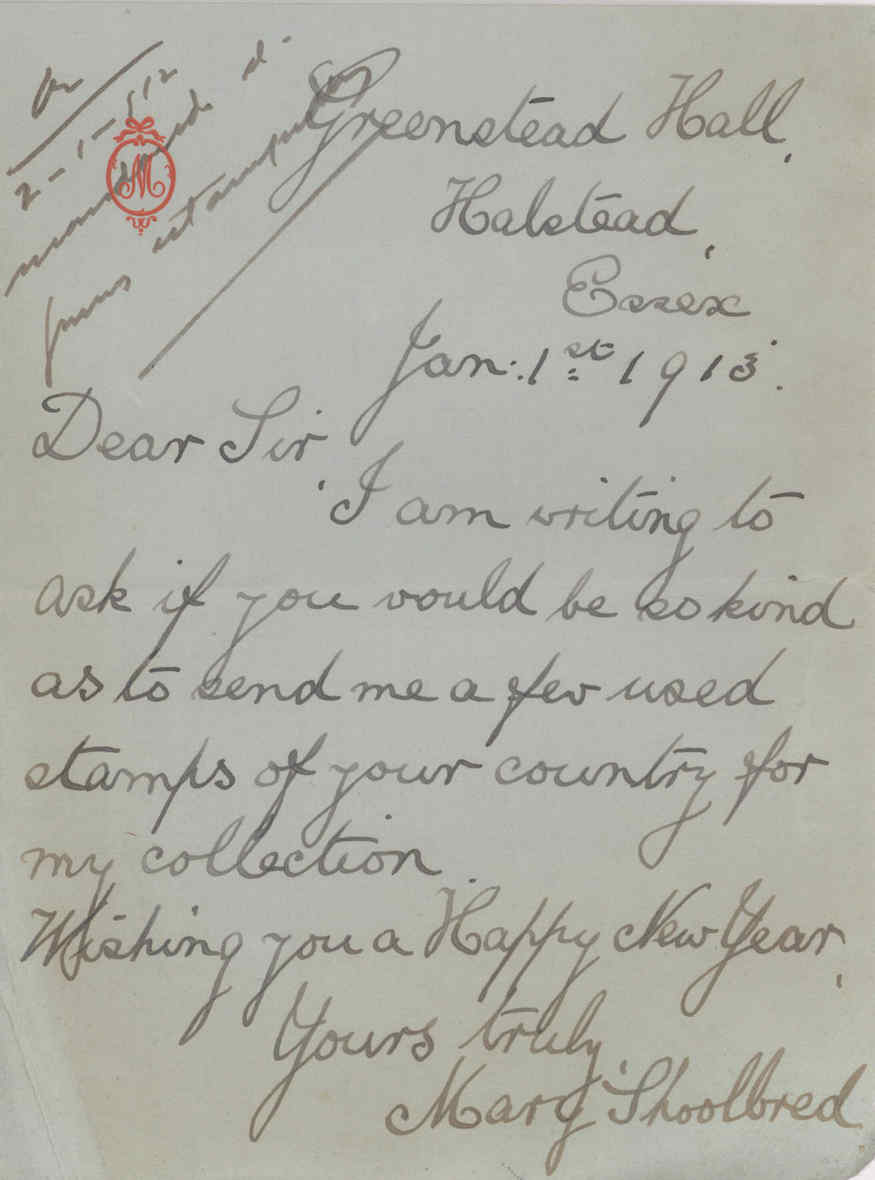 2-1-
M
Greenstead Hall,
Halstead,
Essex
Jan: 1st 1913.
Dear Sir,
I am writing to
ask if you would be so kind
as to send me a few used
stamps of your country for
my collection.
Wishing you a Happy New Year,
Yours truly,
Mary Shoolbred